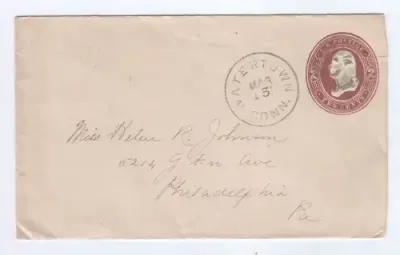 WATERTOWN
MAR
5
CONN.
Miss Helen R. Johnson
5204 G'tn Ave
Philadelphia
Pa